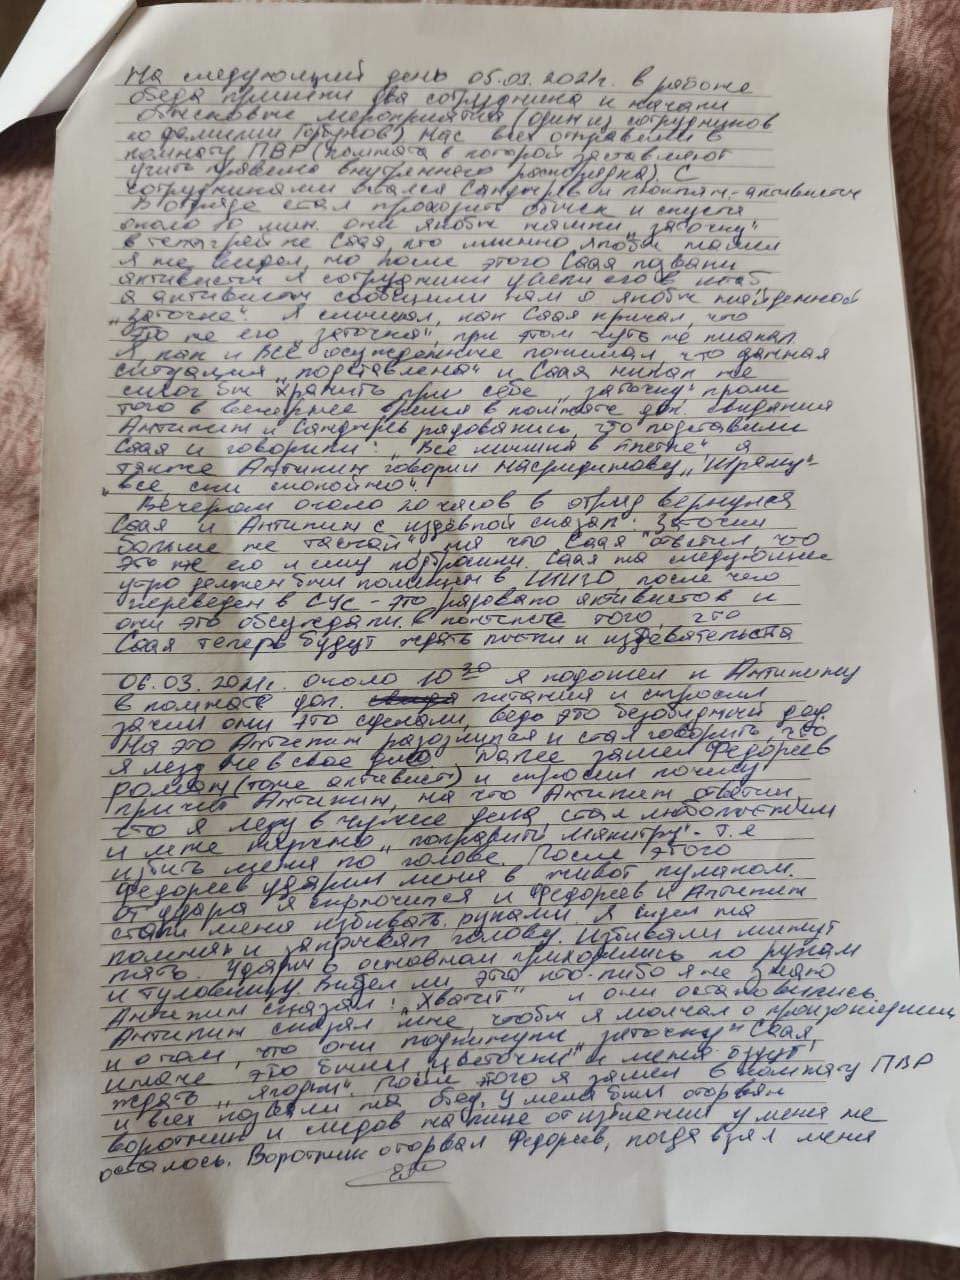 На следующий день 05.03.2021г. в районе
обеда пришли два сотрудника и начали
обысковые мероприятия (один из сотрудников
по фамилии Горбунов) Нас всех отправили в
комнату ПВР (комната в которой заставляют
учить правила внутреннего распорядка). С
сотрудниками остался Сандарев и активисты
В отряде стал проходить обыск и спустя
около 10 мин. они якобы нашли „заточку"
в Саая, кто именно якобы нашел
я не видел, но после этого Саая позвали
активисты и сотрудники увели его в штаб
а активисты сообщили нам о якобы найденной
„заточке". Я слышал, как Саая кричал, что
это не его „заточка", при этом чуть не плакал
Я, как и все осужденные понимал, что данная
ситуация „подставлена" и Саая никак не
смог бы хранить при себе „заточку" кроме
того в вечернее время в комнате дл. свидания
Антипин и радовались, что подставили
Саая и говорили: „Все мышка в клетке", а
также Антипин говорил Насридинову
„все, спи спокойно".
Вечером около 20 часов в отряд вернулся
Саая и Антипин с издевкой сказал: „Заточки
больше не таскай", на что Саая ответил, что
это не его и ему подбросили. Саая на следующее
утро должен был помещен в ШИЗО, после чего
переведен в СУС - это радовало активистов и
они это обсуждали в контексте того, что
Саая теперь будут ждать пытки и издевательства
06.03.2021г. около 10 30 я подошел к Антипину
в комнате доп. питания и спросил
зачем они это сделали, ведь это безобидный дед
На это Антипин разозлился и стал говорить, что
я лезу не в свое дело. Далее зашел Федореев
Роман (тоже активист) и спросил почему
кричит Антипин, на что Антипин ответил,
что я лезу в чужие дела, стал любопытным
и мне нужно „поправить макитру" - т.е
избить меня по голове. После этого
Федореев ударил меня в живот кулаком.
от удара я скрючился и Федореев и Антипин
стали меня избивать руками. Я сидел на
коленях и закрывал голову. Избивали минут
пять. Удары в основном приходились по рукам
и туловищу. Видел ли это кто-либо я не знаю
Антипин сказал: „Хватит" и они остановились.
Антипин сказал мне, чтобы я молчал о произошедшем
и о том, что они подкинули „заточку" Саая,
иначе это были „цветочки" и меня будут
ждать „ягодки". После этого я зашел в комнату ПВР
и всех позвали на обед. У меня был оторван
воротник и следов на лице от избиений у меня не
осталось. Воротник оторвал Федореев, когда взял меня